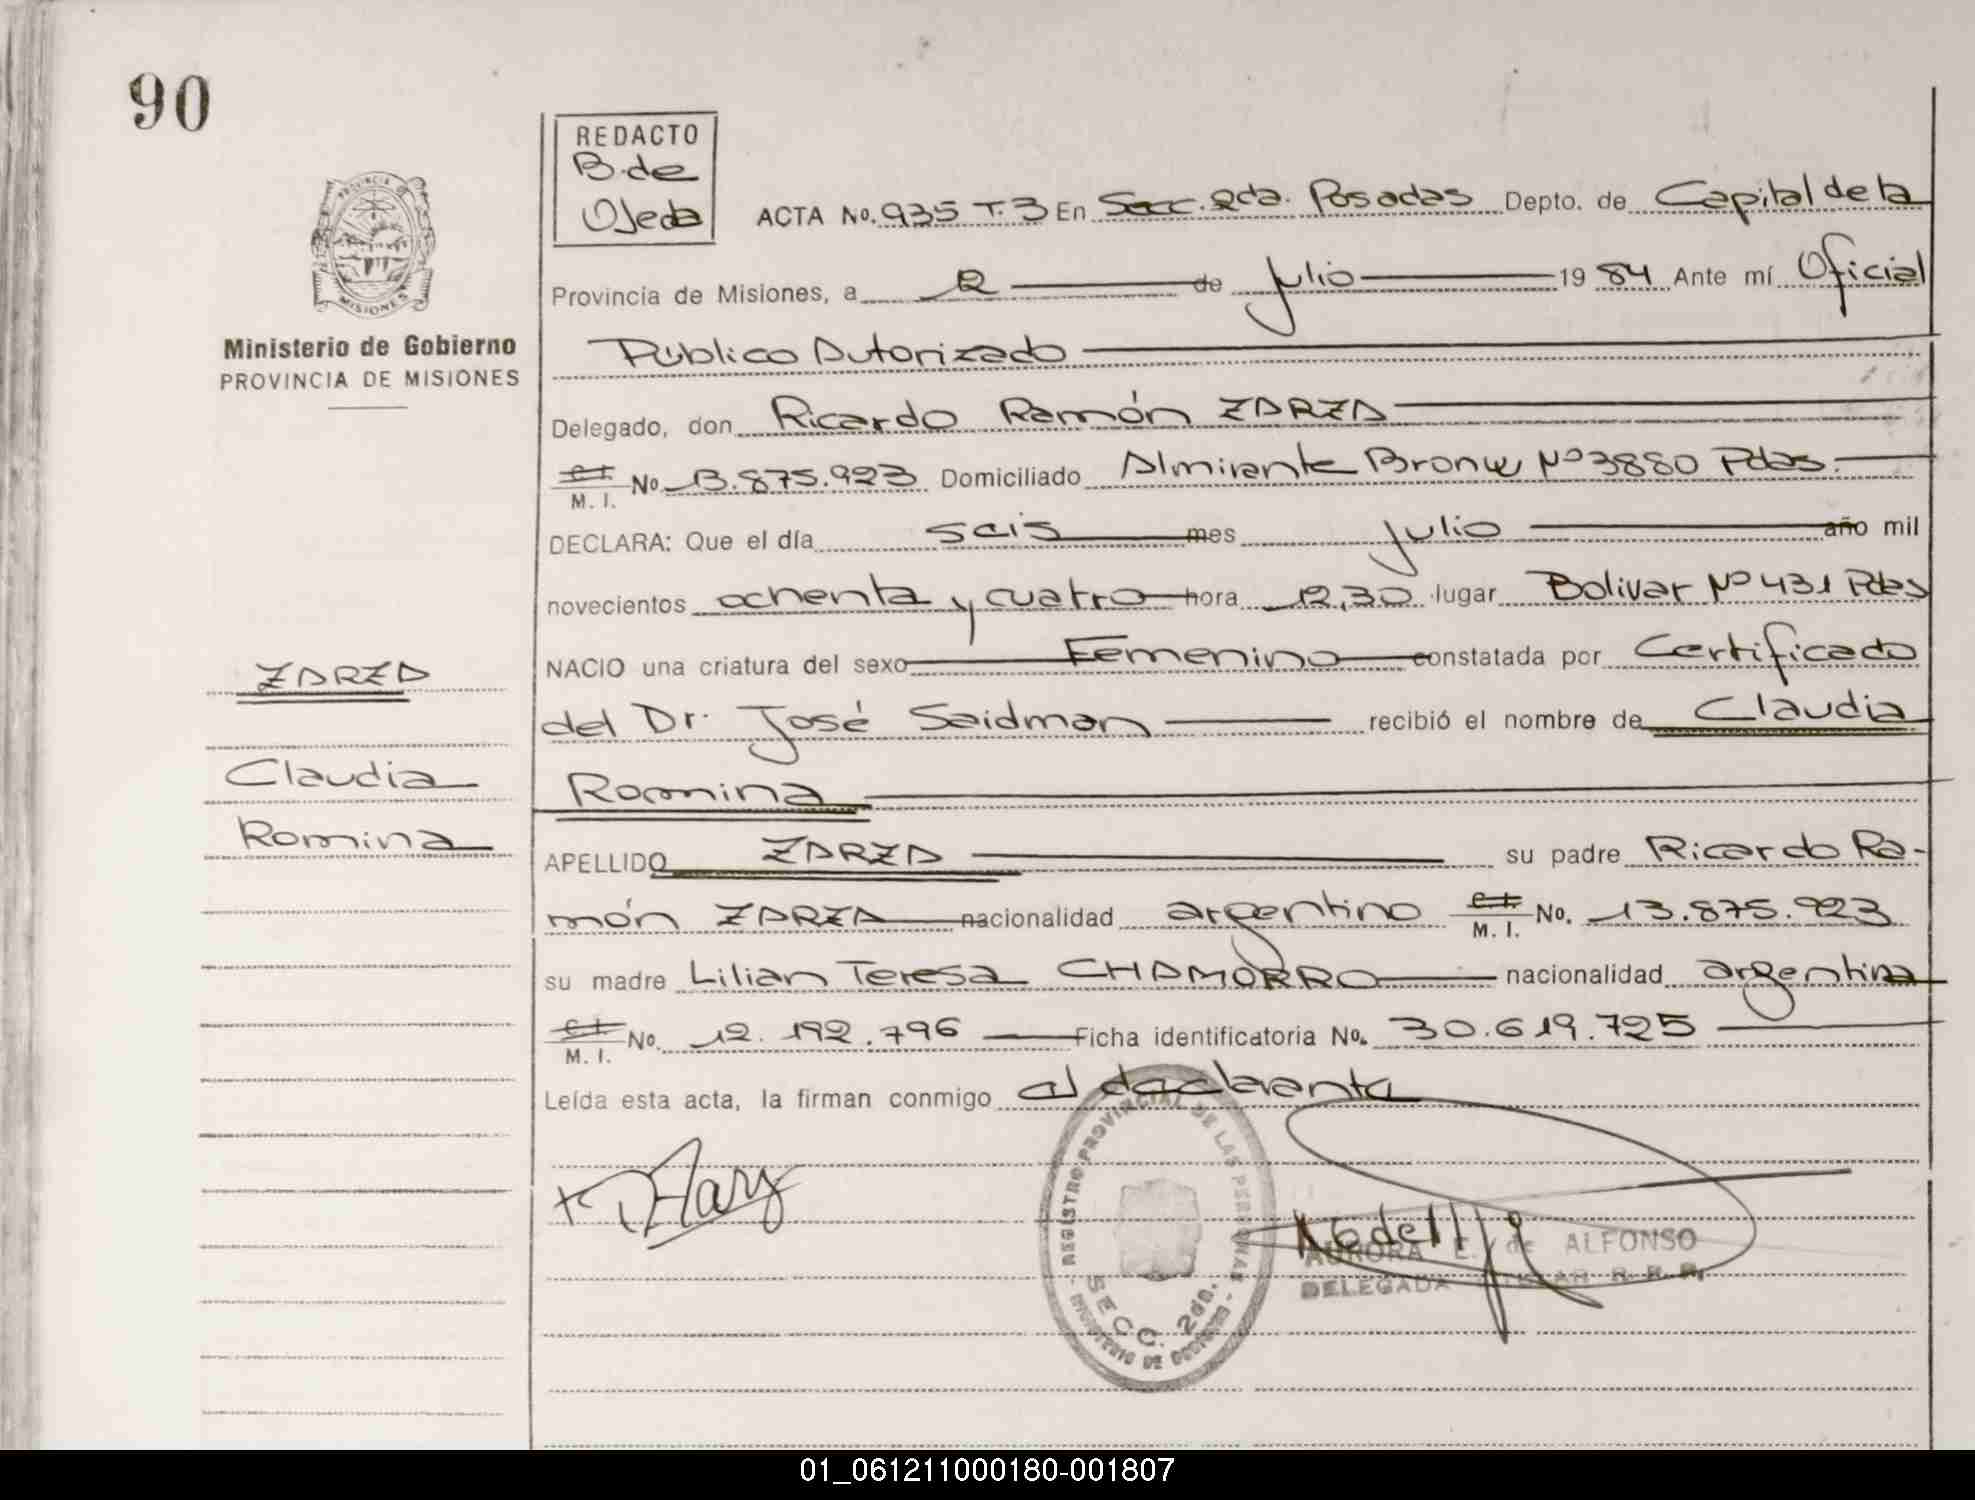 90
REDACTO
B. de
Ojeda
ACTA No. 935 T. 3 En Secc. 2da. Posadas Depto. de Capital de la
PROVINCIA DE
MISIONES
Provincia de Misiones, a 12 de julio 1984 Ante mí Oficial
Ministerio de Gobierno
PROVINCIA DE MISIONES
Público Autorizado
Delegado, don Ricardo Ramón ZARZA
C.I. M. I. No. 13.875.923 Domiciliado Almirante Bronw Nº 3880 Pdas.
DECLARA: Que el día seis mes julio año mil
novecientos ochenta y cuatro hora 12,30 lugar Bolivar Nº 431 Pdas
NACIO una criatura del sexo Femenino constatada por Certificado
ZARZA
del Dr. José Saidman recibió el nombre de Claudia
Claudia
Romina
Romina
APELLIDO ZARZA su padre Ricardo Ra-
món ZARZA nacionalidad argentino C.I. M. I. No. 13.875.923
su madre Lilian Teresa CHAMORRO nacionalidad argentina
C.I. M. I. No. 12.192.796 Ficha identificatoria No. 30.619.725
Leída esta acta, la firman conmigo el declaranta
REGISTRO PROVINCIAL DE LAS PERSONAS
SECC. 2da.
MINISTERIO DE GOBIERNO
AURORA E. de ALFONSO
DELEGADA TITULAR R. P. P.
01_061211000180-001807